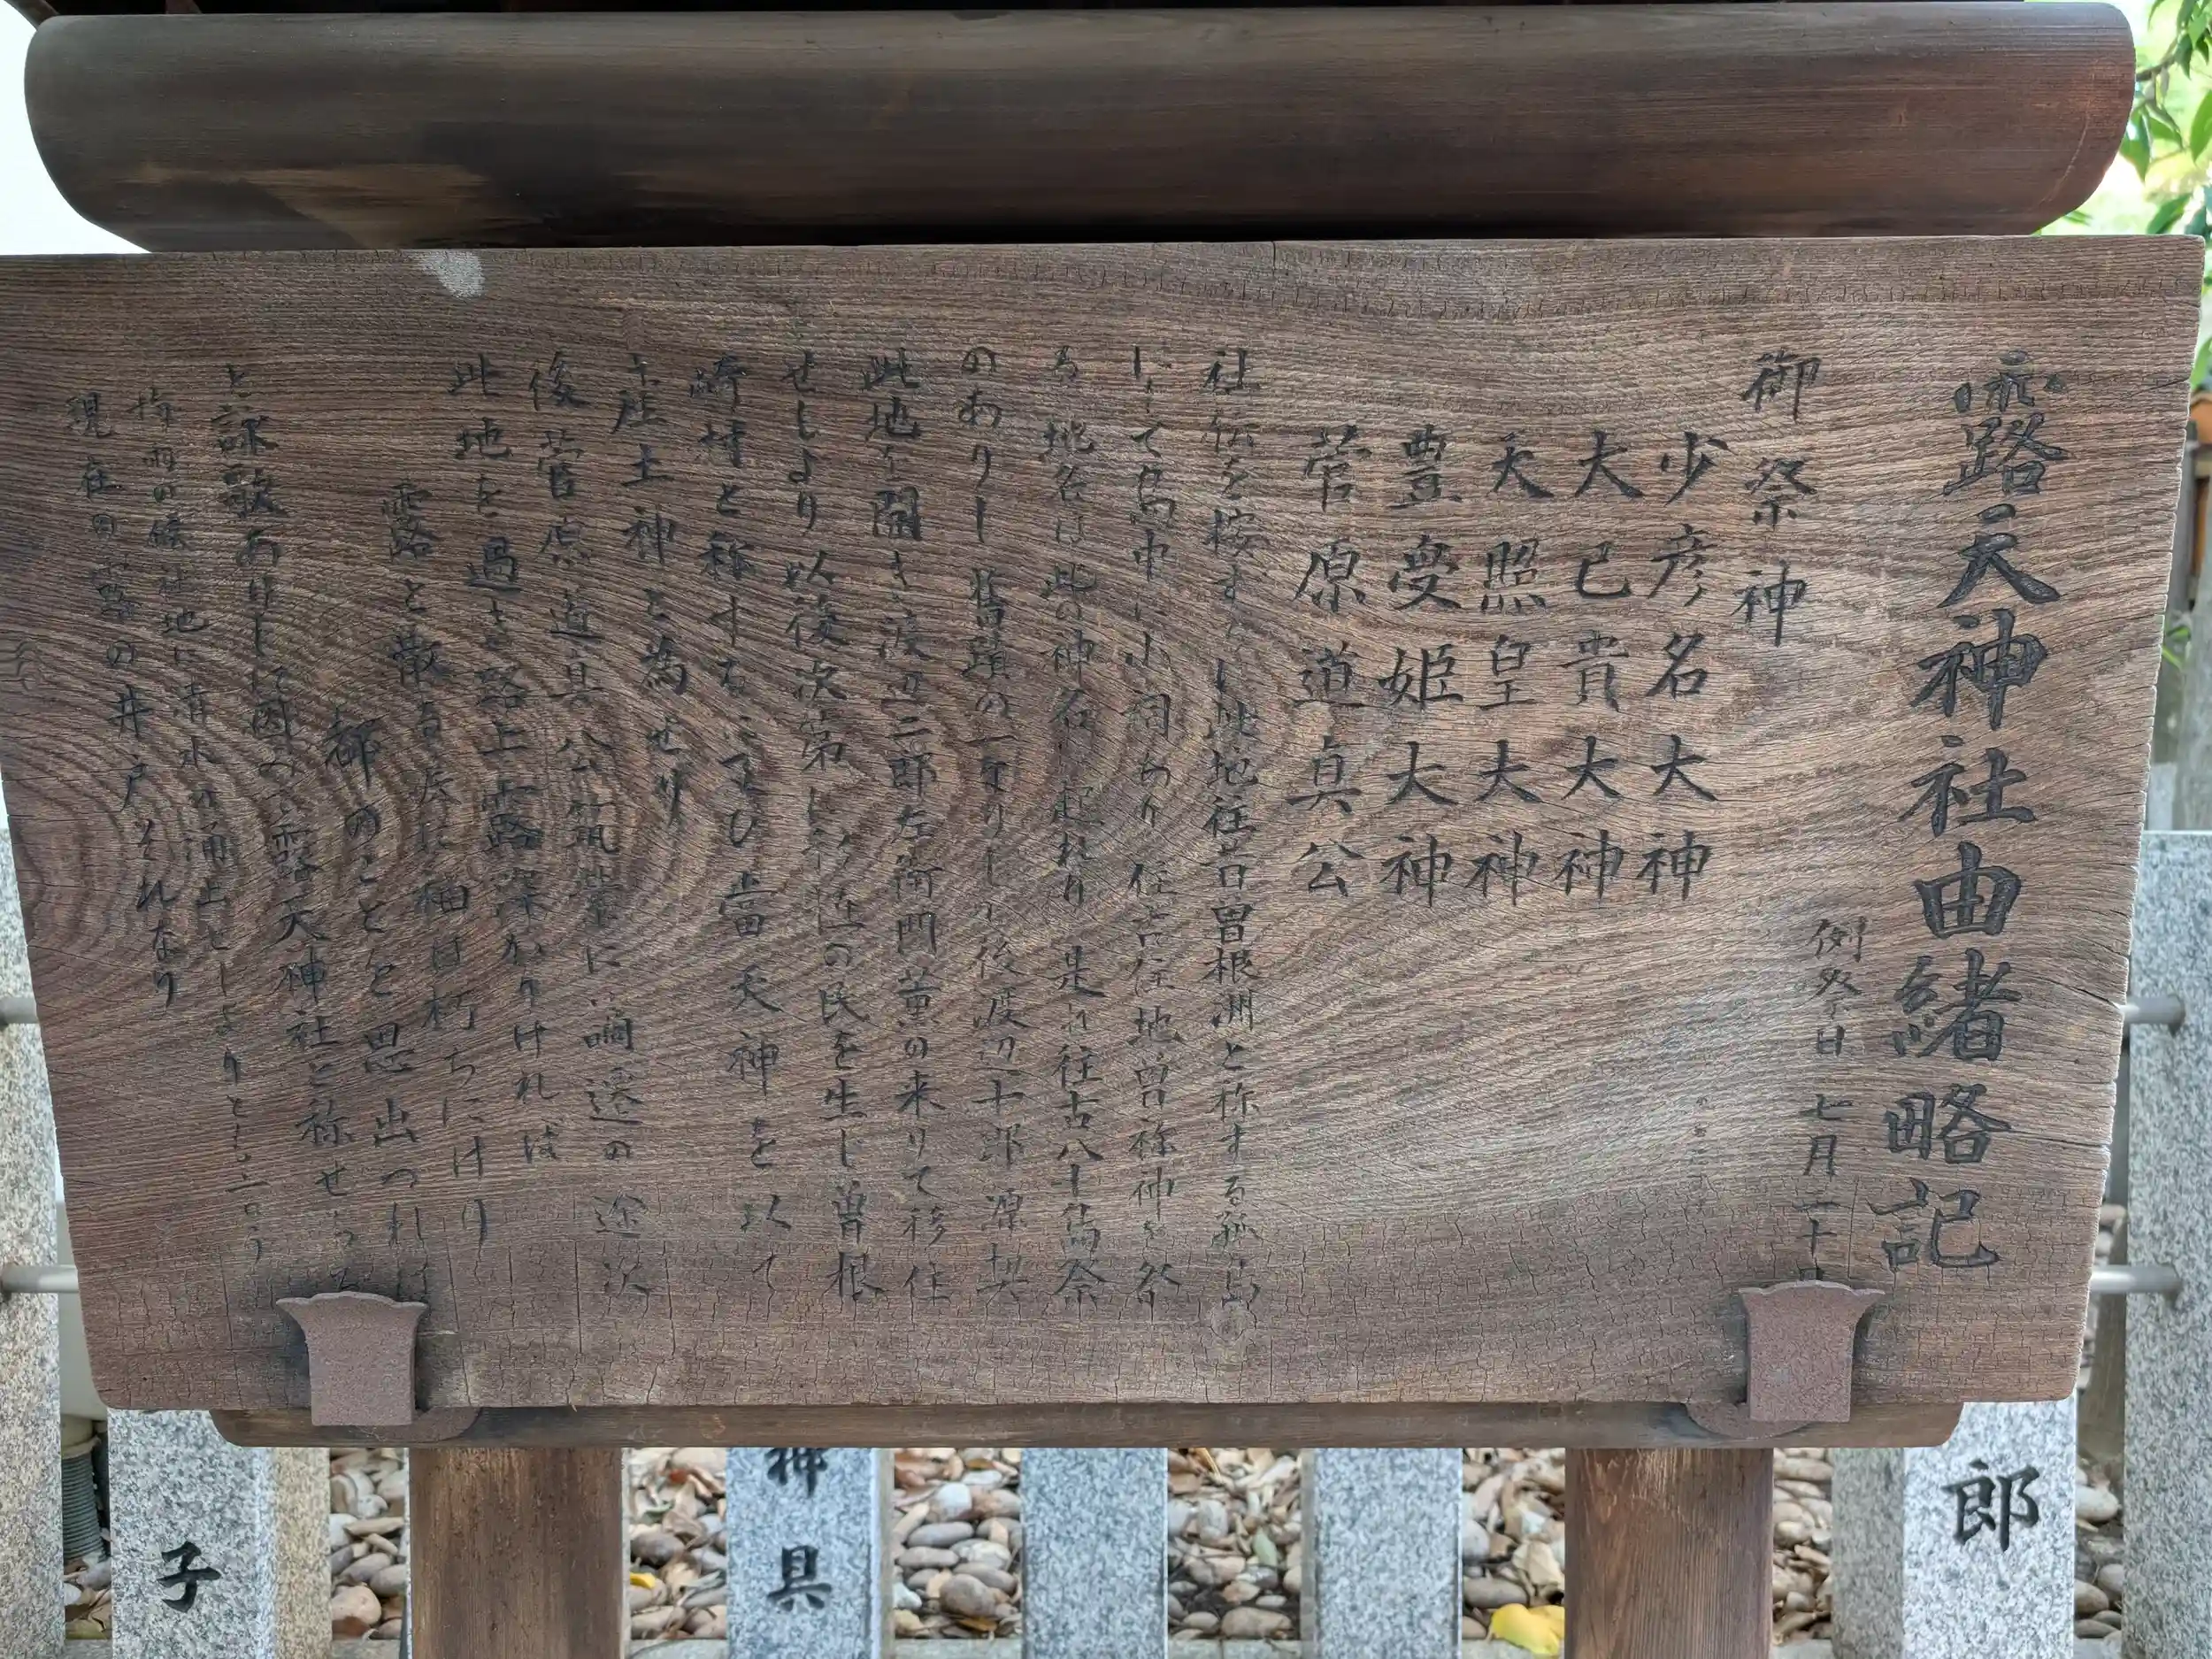 露天神社由緒略記
例祭日 七月二十日
御祭神
少彦名大神
大己貴大神
天照皇大神
豊受姫大神
菅原道真公
社伝を按ずるに此地往昔曽根洲と称する孤島
にして島中に小祠あり 住吉住地曽祢神を祭
る 地名は此の神名に起れり 是れ往古八十島祭
のありし旧蹟の一なりしが後渡辺十郎源契
此地を開き渡辺二郎左衛門薫の来りて移住
せしより以後次第に移住の民を生じ曽根
崎村と称するに至り当天神を以て
産土神と為せり
後菅原道真公筑紫に左遷の途次
此地を過ぎ路上露深かりければ
露と散る涙に袖は朽ちにけり
都のことを思ひ出づれば
と詠歌ありしに因み露天神社と称せらる
梅雨の候社地に清水の湧出せしよりともいう
現在の露の井戸それなり
神具
子
郎